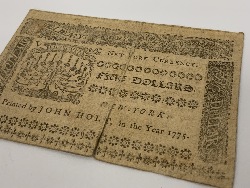 New-York Currency.
FIVE DOLLARS.
NEW-YORK:
Printed by JOHN HOL
in the Year 1775.